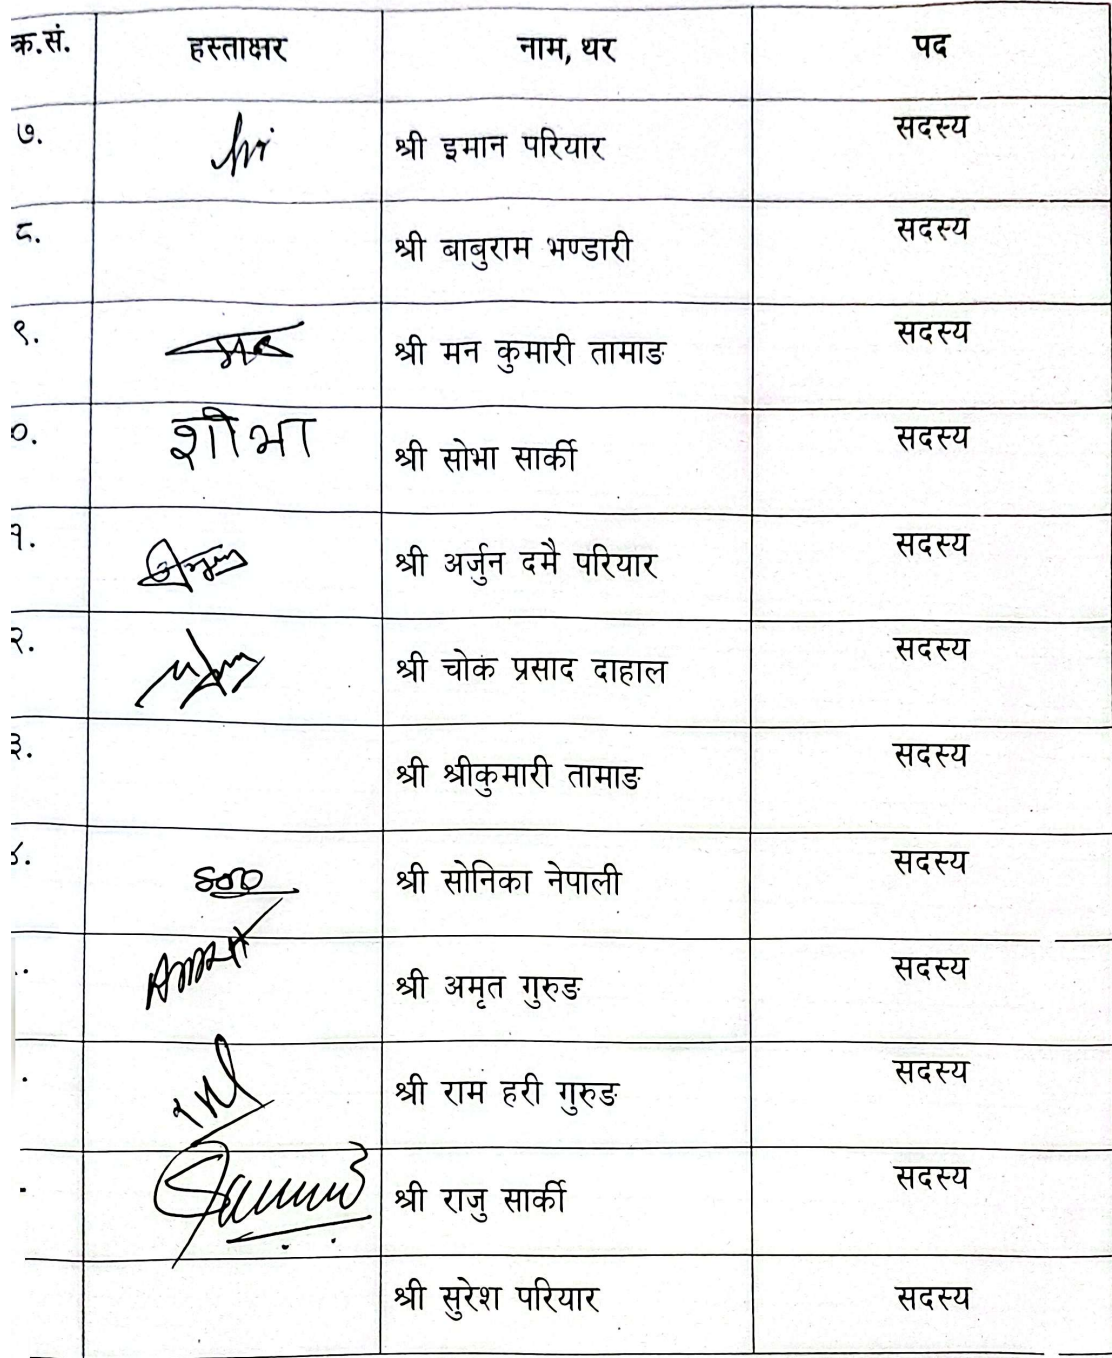 क्र.सं. हस्ताक्षर नाम, थर पद
७. श्री इमान परियार सदस्य
८. श्री बाबुराम भण्डारी सदस्य
९. श्री मन कुमारी तामाङ सदस्य
०. शोभा श्री सोभा सार्की सदस्य
१. श्री अर्जुन दमै परियार सदस्य
२. श्री चोक प्रसाद दाहाल सदस्य
३. श्री श्रीकुमारी तामाङ सदस्य
४. श्री सोनिका नेपाली सदस्य
श्री अमृत गुरुङ सदस्य
श्री राम हरी गुरुङ सदस्य
श्री राजु सार्की सदस्य
श्री सुरेश परियार सदस्य